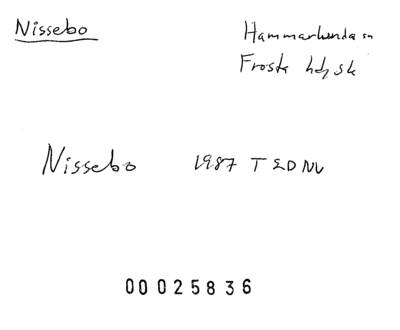 Nissebo
Hammarlunda sn
Frosta hd, Sk
Nissebo 1987 T EDNV
00025836